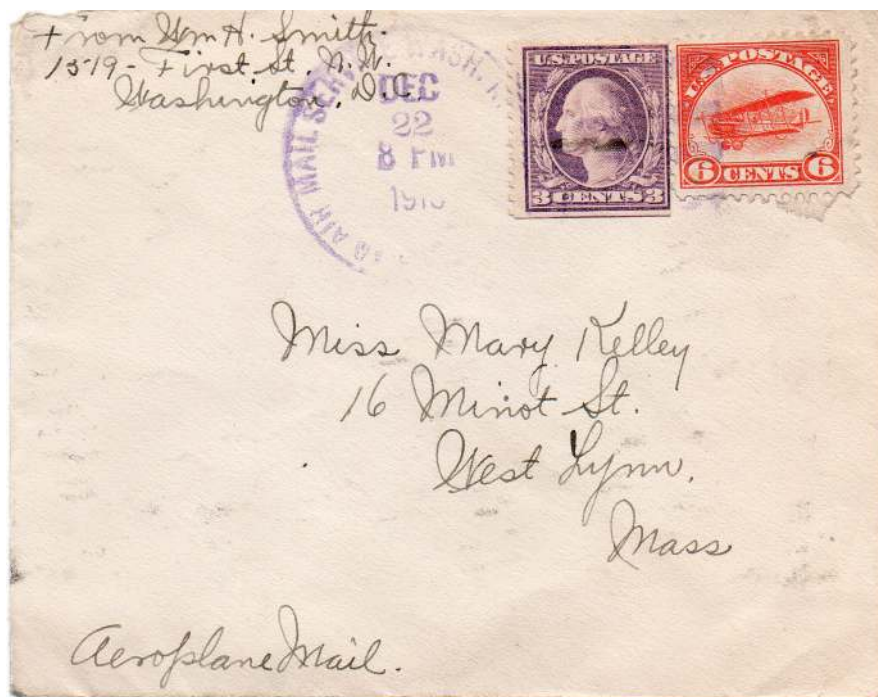 From Wm H. Smith.
1519 - First. St. N.W.
Washington, D.C.
AIR MAIL SERVICE WASH.
DEC
22
8 PM
U.S. POSTAGE
3 CENTS 3
U.S. POSTAGE
6 CENTS 6
Miss Mary Kelley
16 Minot St.
West Lynn.
Mass
Aeroplane Mail.